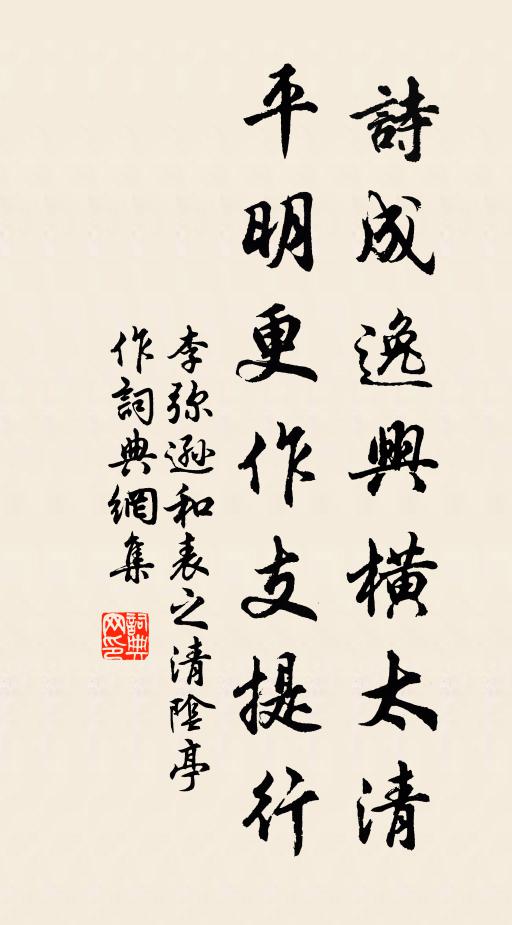 詩成逸興橫太清
平明更作支提行
李弥遜和表之清陰亭
作詞典網集
詞典网印